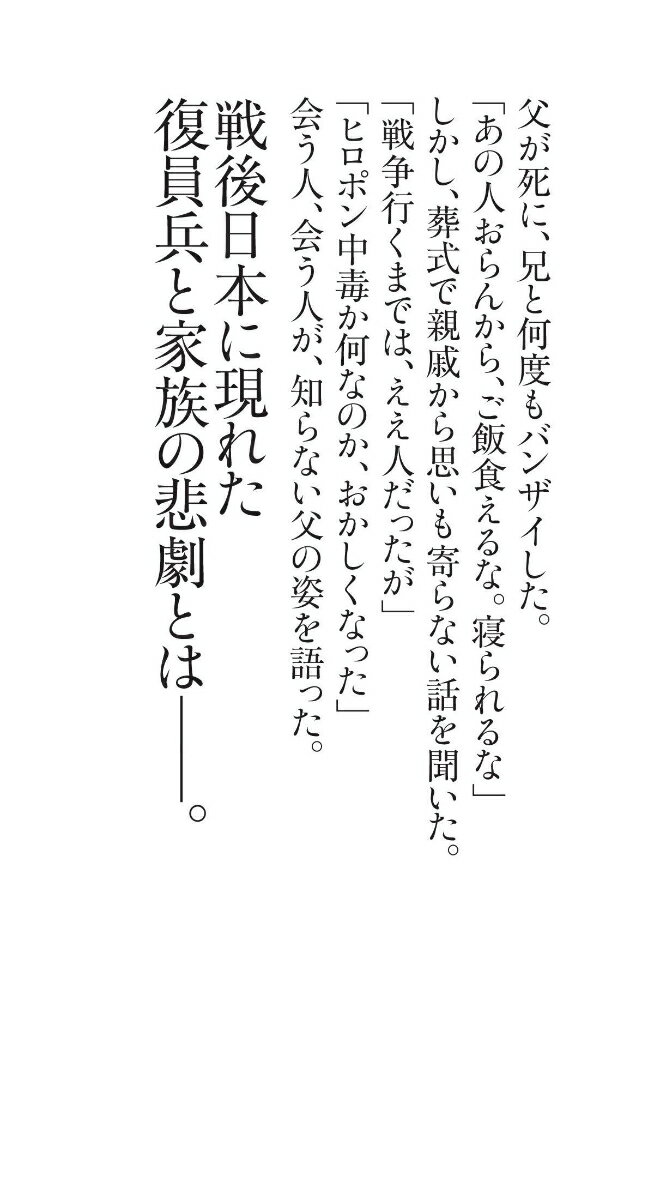 父が死に、兄と何度もバンザイした。
「あの人おらんから、ご飯食えるな。寝られるな」
しかし、葬式で親戚から思いも寄らない話を聞いた。
「戦争行くまでは、ええ人だったが」
「ヒロポン中毒か何なのか、おかしくなった」
会う人、会う人が、知らない父の姿を語った。
戦後日本に現れた
復員兵と家族の悲劇とは──。